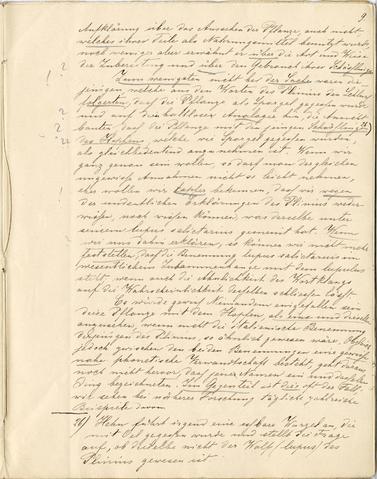 9
Aufklärung über das Aussehen der Pflanze, auch nicht
welcher ihrer Teile als Nahrungsmittel benutzt wurde,
noch weniger aber erwähnt er über die Art und Weise
der Zubereitung und über den Gebrauch ihrer Schösslinge.
Zum wenigsten nicht bei der Sache waren die
jenigen, welche aus den Worten des Plinius den Schluss
folgerten, dass die Pflanze als Spargel gegessen wurde
und auf die haltlose Analogie hin, die Annahme
bauten, dass die Pflanze mit den jungen Schösslingen
des Hopfens, welche wie Spargel gegessen wurden,
als gleichbedeutend anzunehmen ist. Wenn wir
ganz genau sein wollen, so darf man dergleichen
ungewisse Annahmen nicht so leicht nehmen,
eher wollen wir tapfer bekennen, dass wir wegen
der undeutlichen Erklärungen des Plinius weder
wissen, noch wissen können, was derselbe unter
seinem lupus salictarius gemeint hat. Wenn
wir uns dahin erklären, so können wir nicht mehr
feststellen, dass die Benennung lupus salictarius im
wesentlichen Zusammenhange mit dem lupulus
steht, wenn auch die Ähnlichkeit des Wortklangs
auf die Wahrscheinlichkeit desselben schliessen lässt.
Es würde gewiss Niemandem eingefallen sein
diese Pflanze mit dem Hopfen als eine und dieselbe
anzusehen, wenn nicht die italienische Benennung
derjenigen des Plinius, so ähnlich gewesen wäre. Obgleich
jedoch zwischen den beiden Benennungen eine gewisse
nahe phonetische Verwandtschaft besteht, geht daraus
noch nicht hervor, dass jener Namen ein und dasselbe
Ding bezeichneten. Im Gegenteil ist dies oft der Fall,
wir sehen bei näherer Forschung täglich zahlreiche
Beispiele davon.
26) Hehn führt irgend eine essbare Wurzel an, die
mit Oel gegessen wurde und stellt die Frage
auf, ob dieselbe nicht der Wolf (lupus) des
Plinius gewesen ist